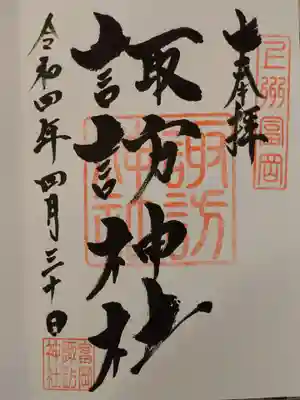 上州富岡
奉拝
諏訪神社
諏訪
神社
令和四年四月三十日
富岡
諏訪
神社